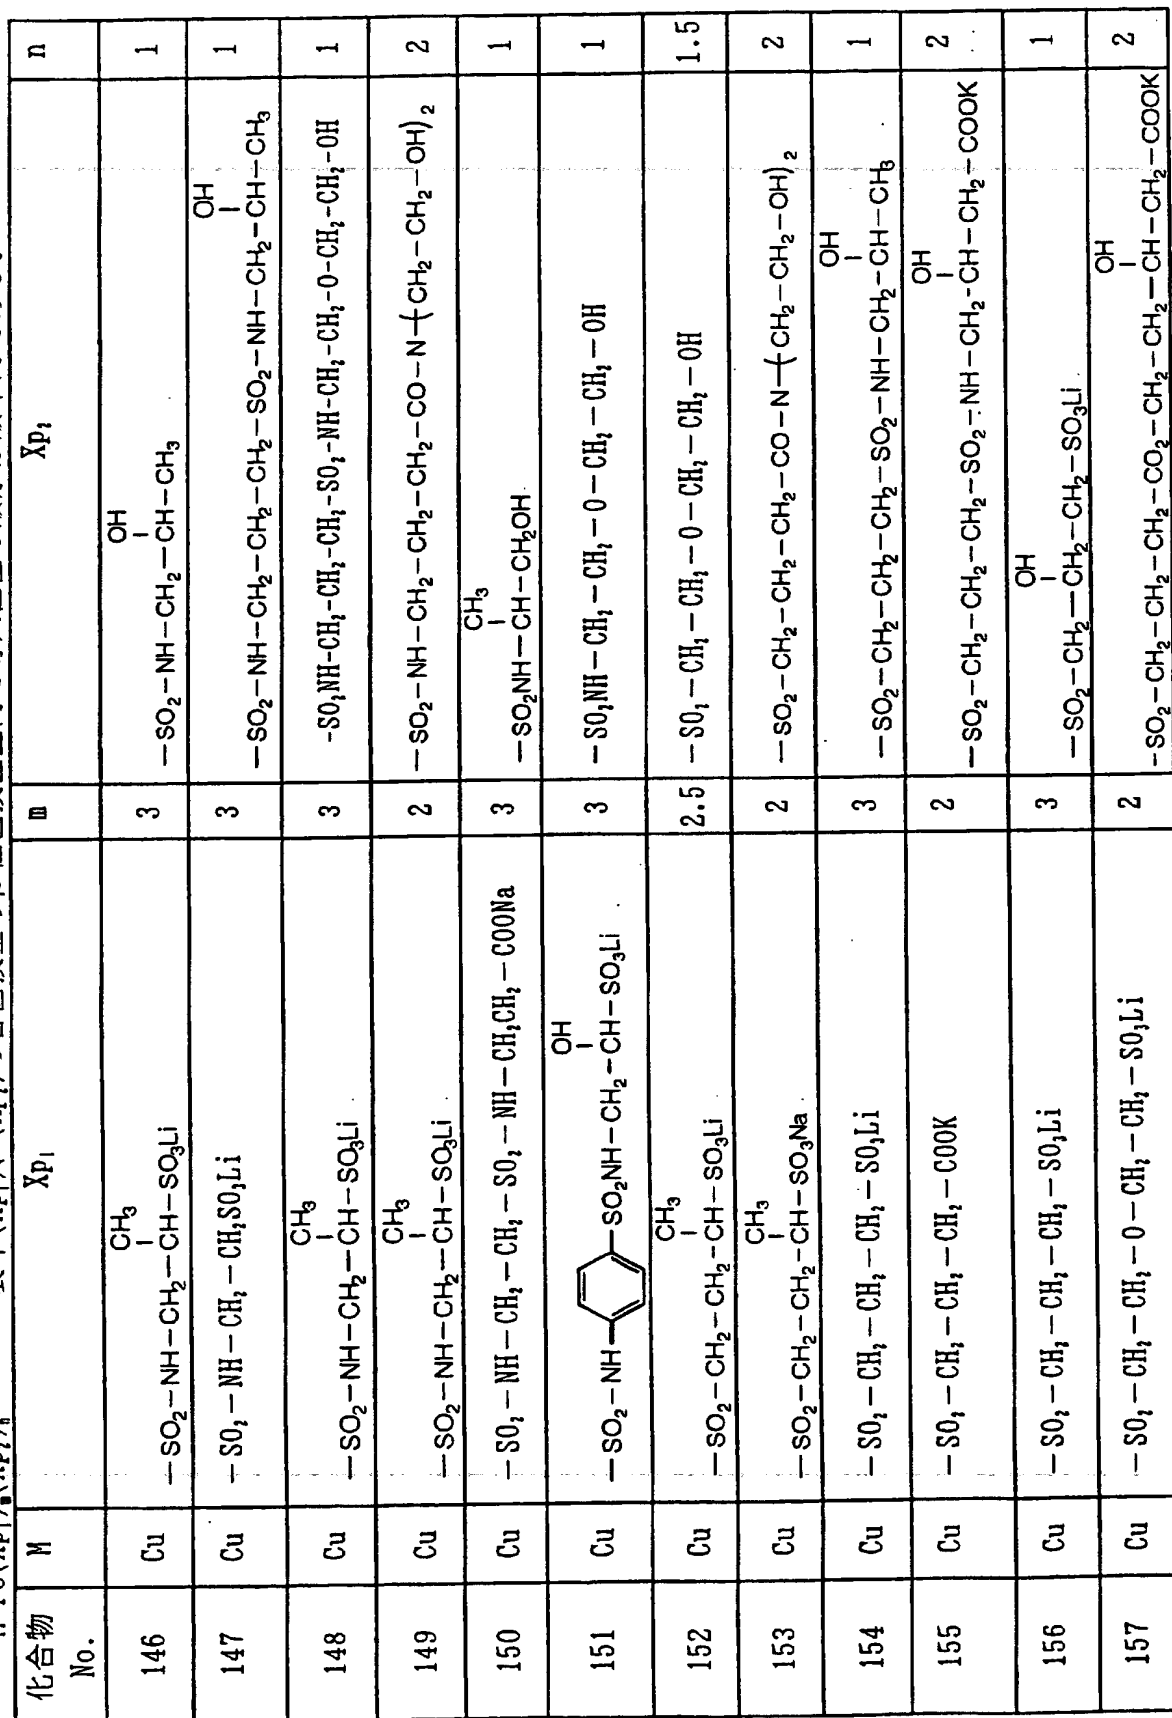 化合物 No. M Xp₁ m Xp₂ n
146 Cu —SO₂—NH—CH₂—CH(CH₃)—SO₃Li 3 —SO₂—NH—CH₂—CH(OH)—CH₃ 1
147 Cu —SO₂—NH—CH₂—CH₂SO₃Li 3 —SO₂—NH—CH₂—CH₂—CH₂—SO₂—NH—CH₂—CH(OH)—CH₃ 1
148 Cu —SO₂—NH—CH₂—CH(CH₃)—SO₃Li 3 -SO₂NH-CH₂-CH₂-CH₂-SO₂-NH-CH₂-CH₂-O-CH₂-CH₂-OH 1
149 Cu —SO₂—NH—CH₂—CH(CH₃)—SO₃Li 2 —SO₂—NH—CH₂—CH₂—CH₂—CO—N—(CH₂—CH₂—OH)₂ 2
150 Cu —SO₂—NH—CH₂—CH₂—SO₂—NH—CH₂CH₂—COONa 3 —SO₂NH—CH(CH₃)—CH₂OH 1
151 Cu —SO₂—NH— —SO₂NH—CH₂—CH(OH)—SO₃Li 3 —SO₂NH—CH₂—CH₂—O—CH₂—CH₂—OH 1
152 Cu —SO₂—CH₂—CH₂—CH(CH₃)—SO₃Li 2.5 —SO₂—CH₂—CH₂—O—CH₂—CH₂—OH 1.5
153 Cu —SO₂—CH₂—CH₂—CH(CH₃)—SO₃Na 2 —SO₂—CH₂—CH₂—CH₂—CO—N—(CH₂—CH₂—OH)₂ 2
154 Cu —SO₂—CH₂—CH₂—CH₂—SO₃Li 3 —SO₂—CH₂—CH₂—CH₂—SO₂—NH—CH₂—CH(OH)—CH₃ 1
155 Cu —SO₂—CH₂—CH₂—CH₂—COOK 2 —SO₂—CH₂—CH₂—CH₂—SO₂—NH—CH₂—CH(OH)—CH₂—COOK 2
156 Cu —SO₂—CH₂—CH₂—CH₂—SO₃Li 3 —SO₂—CH₂—CH₂(OH)—CH₂—SO₃Li 1
157 Cu —SO₂—CH₂—CH₂—O—CH₂—CH₂—SO₃Li 2 -SO₂—CH₂—CH₂—CH₂—CO₂—CH₂—CH₂—CH(OH)—CH₂—COOK 2